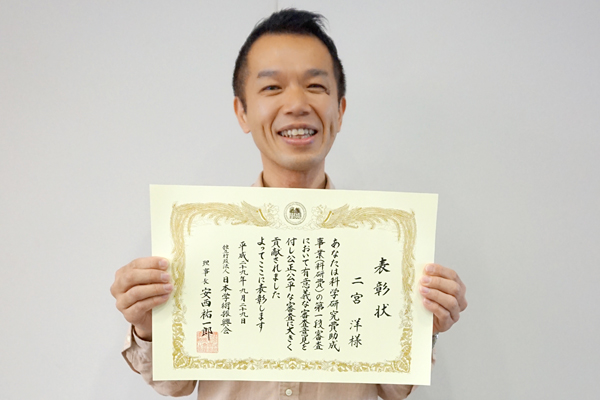 表彰状
二宮 洋 様
あなたは科学研究費助成
事業(科研費)の第一段審査
において有意義な審査意見を
付し公正公平な審査に大きく
貢献されました
よってここに表彰します
平成二十九年九月二十九日
独立行政法人 日本学術振興会
理事長 安西祐一郎